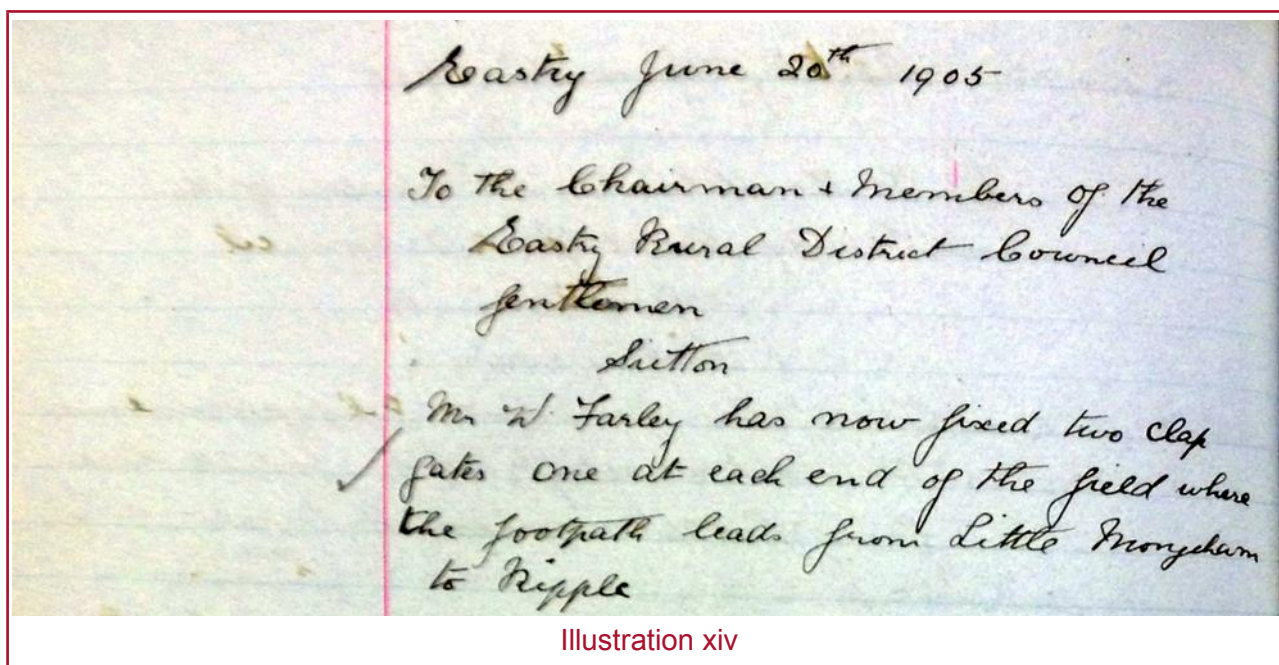 Eastry June 20th 1905
To the Chairman + Members of the
Eastry Rural District Council
Gentlemen
Sutton
Mr W. Farley has now fixed two clap
gates one at each end of the field where
the footpath leads from Little Mongeham
to Ripple
Illustration xiv